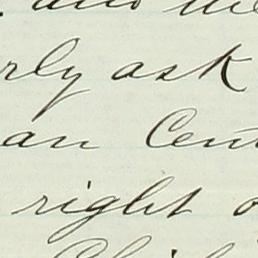 rly ask
an Cent
right o